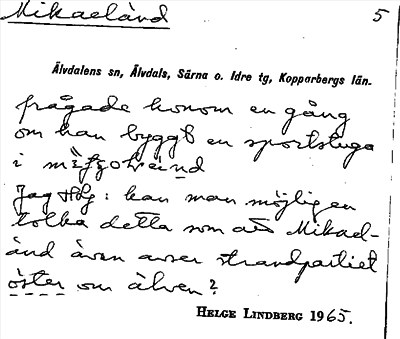 Mikaeländ 5
Älvdalens sn, Älvdals, Särna o. Idre tg, Kopparbergs län.
frågade honom en gång
om han byggt en sportstuga
i
Jag : kan man möjligen
tolka detta som att Mikael-
änd även avser strandpartiet
öster om älven?
HELGE LINDBERG 1965.